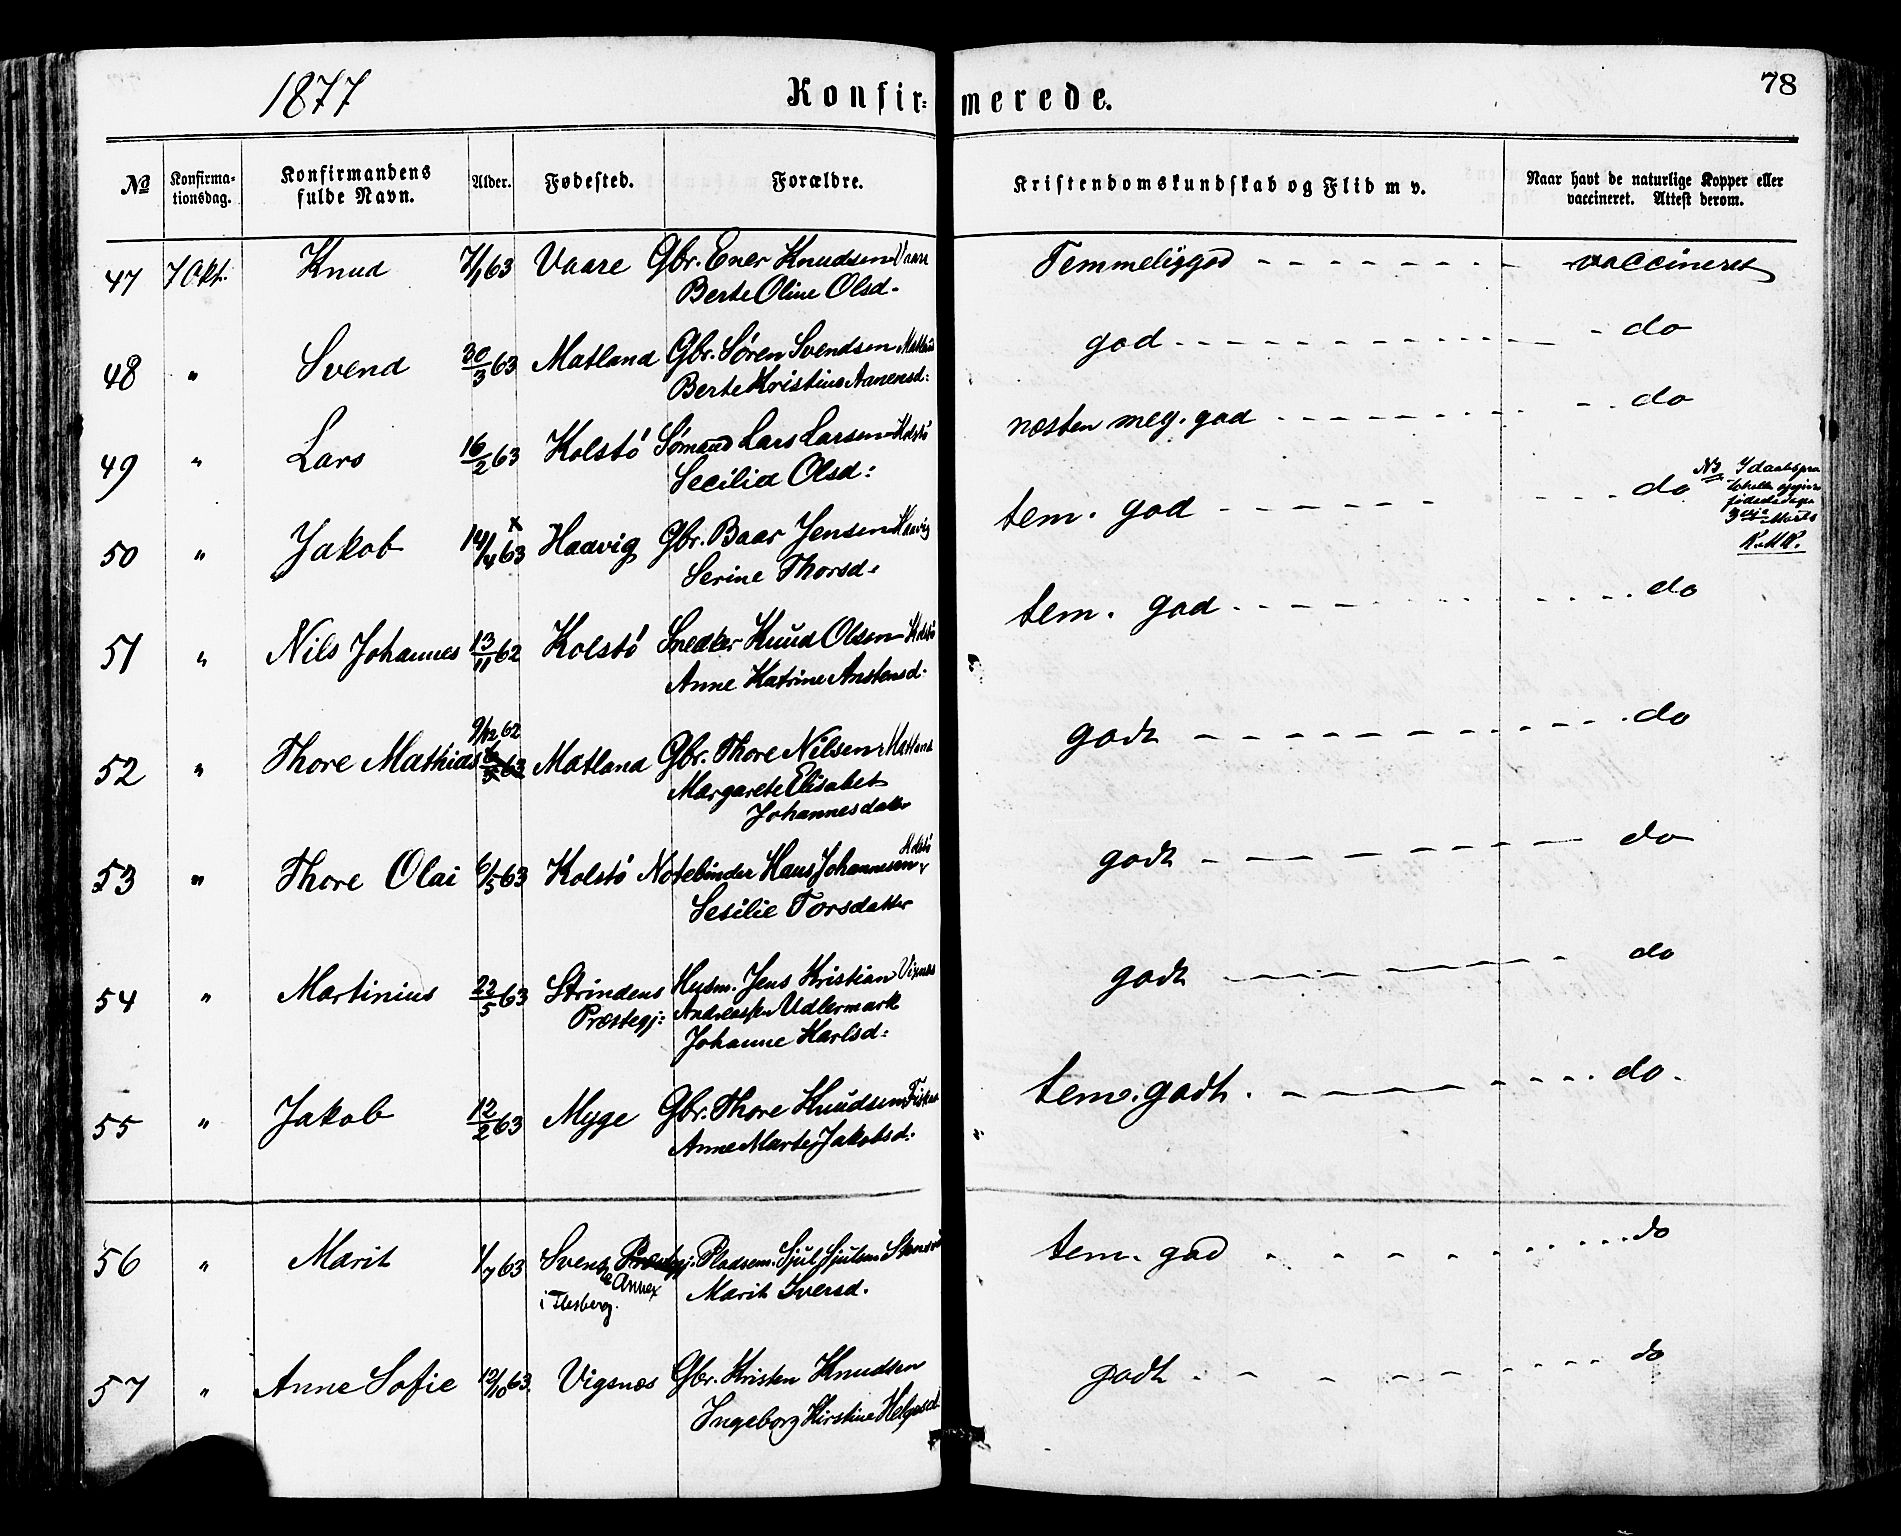 1877 Konfir= merede. 78
No Konfirma=tionsdag. Konfirmandens fulde Navn. Alder. Fødested. Forældre. Kristendomskundskab og Flid m v. Naar havt de naturlige Kopper eller vaccineret. Attest derom.
47 7 Okt. Knud 7/1 63 Vaare Gbr. Ener Knudsen Vaare Temmeliggod - - - - - - - - vaccineret
Berte Oline Olsd.
48 " Svend 30/3 63 Matland Gbr. Søren Svendsen Matland god - - - - - - - - do
Berte Kristine Aanensd:
49 " Lars 16/2 63 Kolstö Sömand Lars Larsen Kolstö næsten meg. god - - - - - - - - do
Secilia Olsd:
50 " Jakob 14/4 63 x Haavig Gbr. Baar Jensen Haavig tem. god - - - - - - - - do
Serine Thorsd.
NB. I daabspro
tokollen opgives
fødselsdagen
3die Marts
51 " Nils Johannes 13/11 62 Kolstö Snedker Knud Olsen Kolstö tem. god - - - - - - - - do
Anne Katrine Anstensd.
9/12 62
52 " Thore Mathias 63 Matland Gbr. Thore Nilsen Matland godt - - - - - - - - do
Margarete Elisabet
Johannesdatter
53 " Thore Olai 6/5 63 Kolstö Notebinder Hans Johannesen Kolstö godt - - - - - - - - do
Sesilie Torsdatter
54 " Martinius 22/5 63 Strindens Husm. Jens Kristian Vixnæs godt - - - - - - - - do
Præstegj: Andreassen Udlermark
Johanne Karlsd:
55 " Jakob 12/2 63 Myge Gbr. Thore Knudsen tem. godt. - - - - - - - - do.
Anne Marte Jakobsd:
56 " Marit 1/7 63 Svene Præstegj. Pladsem. Sjul Sjulsen tem. god - - - - - - - - do
Annex Marit Iversd.
i Flesberg.
57 " Anne Sofie 12/10 63 Vigsnæs Gbr. Kristen Knudsen godt - - - - - - - - do
Ingeborg Kirstine Helgesd